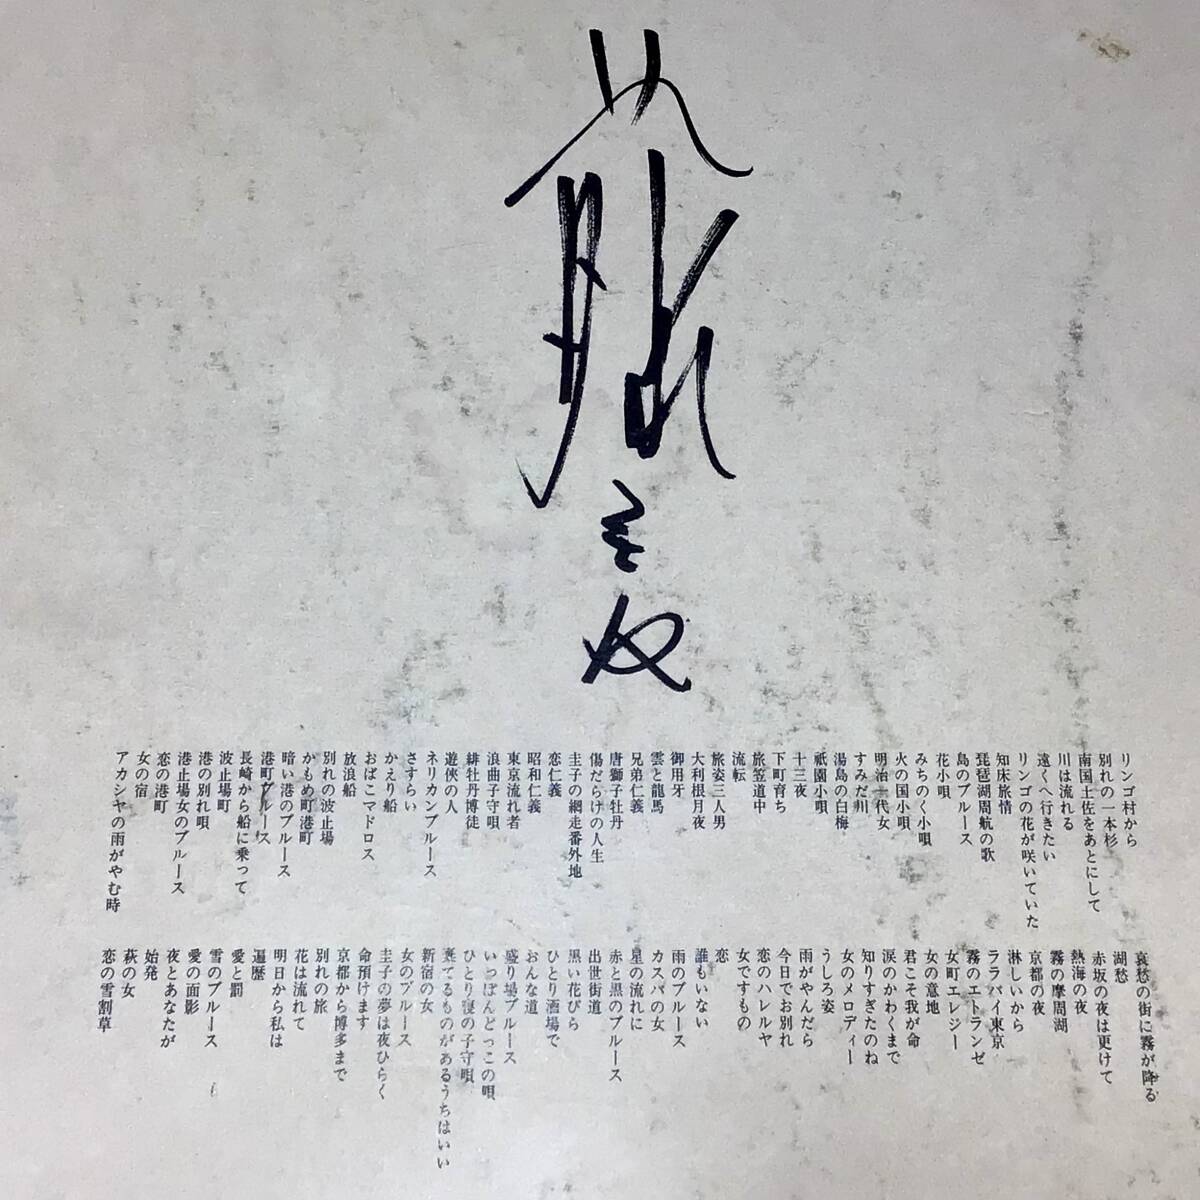 藤圭子
リンゴ村から
別れの一本杉
南国土佐をあとにして
川は流れる
遠くへ行きたい
リンゴの花が咲いていた
知床旅情
琵琶湖周航の歌
島のブルース
花小唄
みちのく小唄
火の国小唄
明治一代女
すみだ川
湯島の白梅
祇園小唄
十三夜
下町育ち
旅笠道中
流転
旅姿三人男
大利根月夜
御用牙
雲と龍馬
兄弟仁義
唐獅子牡丹
傷だらけの人生
圭子の網走番外地
恋仁義
昭和仁義
東京流れ者
浪曲子守唄
緋牡丹博徒
遊俠の人
ネリカンブルース
さすらい
かえり船
おばこマドロス
放浪船
別れの波止場
かもめ町港町
暗い港のブルース
港町ブルース
長崎から船に乗って
波止場町
港の別れ唄
港止場女のブルース
恋の港町
女の宿
アカシヤの雨がやむ時
哀愁の街に霧が降る
湖愁
赤坂の夜は更けて
熱海の夜
霧の摩周湖
京都の夜
淋しいから
ララバイ東京
霧のエトランゼ
女町エレジー
女の意地
君こそ我が命
涙のかわくまで
知りすぎたのね
女のメロディー
うしろ姿
雨がやんだら
今日でお別れ
恋のハレルヤ
女ですもの
恋
誰もいない
雨のブルース
カスバの女
星の流れに
赤と黒のブルース
出世街道
黒い花びら
ひとり酒場で
おんな道
盛り場ブルース
いっぽんどっこの唄
ひとり寝の子守唄
棄てるものがあるうちはいい
新宿の女
女のブルース
圭子の夢は夜ひらく
命預けます
京都から博多まで
別れの旅
花は流れて
明日から私は
遍歴
愛と罰
雪のブルース
愛の面影
夜とあなたが
始発
萩の女
恋の雪割草